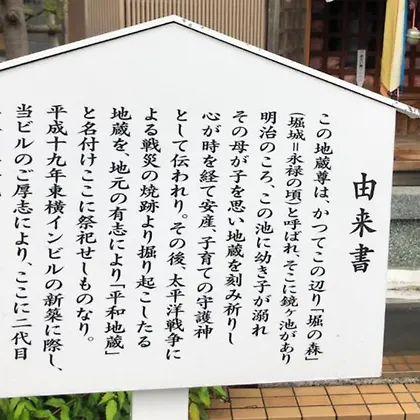 由来書
この地蔵尊は、かつてこの辺り「堀の森」
(堀城＝永禄の頃)と呼ばれ、そこに鏡ヶ池があり
明治のころ、この池に幼き子が溺れ
その母が子を思い地蔵を刻み祈りし
心が時を経て安産、子育ての守護神
として伝われり。その後、太平洋戦争に
よる戦災の焼跡より掘り起こしたる
地蔵を、地元の有志により「平和地蔵」
と名付けここに祭祀せしものなり。
平成十九年東横インビルの新築に際し、
当ビルのご厚志により、ここに二代目